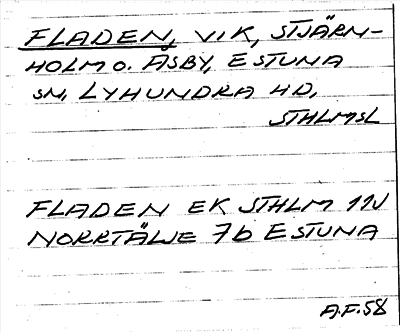 FLADEN, VIK, STJÄRN-
HOLM O. ÅSBY, ESTUNA
SN, LYHUNDRA HD,
STHLMSL
FLADEN EK STHLM 11J
NORRTÄLJE 7b ESTUNA
A.F. 58